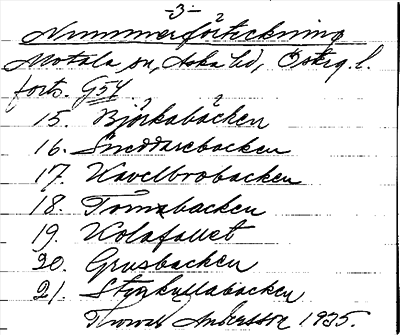 -3-
Nummerförteckning
Motala sn, Aska hd, Österg. l.
forts. G54
15. Björkabacken
16. Sneddarebacken
17. Kavelbrobacken
18. Tomabacken
19. Kolafallet
20. Grusbacken
21. Styrkullabacken
Andersson 1935.